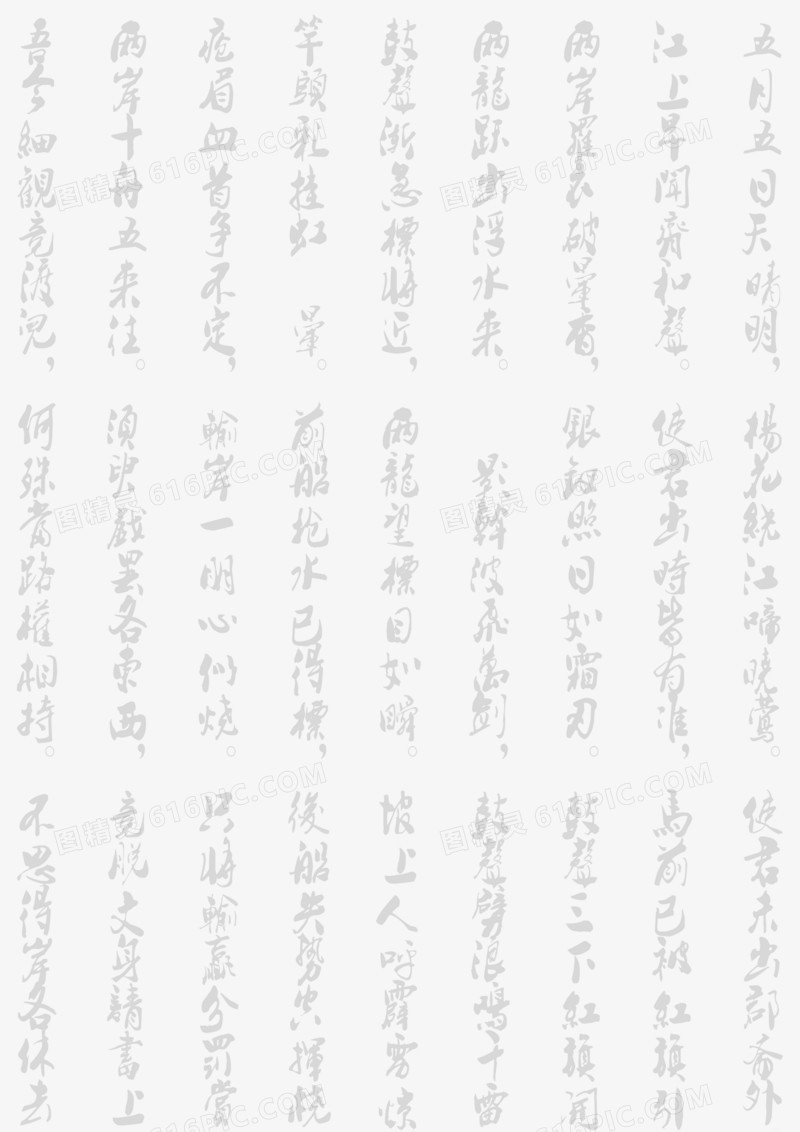 五月五日天晴明,楊花繞江啼曉鶯。使君未出郡齋外
江上早聞齊和聲。使君出時皆有准,馬前已被紅旗引
兩岸羅衣破暈香,銀釵照日如霜刃。鼓聲三下紅旗開
兩龍躍出浮水來。影斡波飛萬劍,鼓聲劈浪鳴千雷
鼓聲漸急標將近,兩龍望標目如瞬。坡上人呼霹靂驚
竿頭彩挂虹 暈。前船搶水已得標,後船失勢空揮橈
瘡眉血首爭不定,輸岸一朋心似燒。只將輸贏分罰賞
兩岸十舟五來往。須臾戲罷各東西,競脫文身請書上
吾今細觀競渡兒,何殊當路權相持。不思得岸各休去
图精灵 616PIC.COM
图精灵 616PIC.COM
图精灵 616PIC.COM
图精灵 616PIC.COM
图精灵 616PIC.COM
图精灵 616PIC.COM